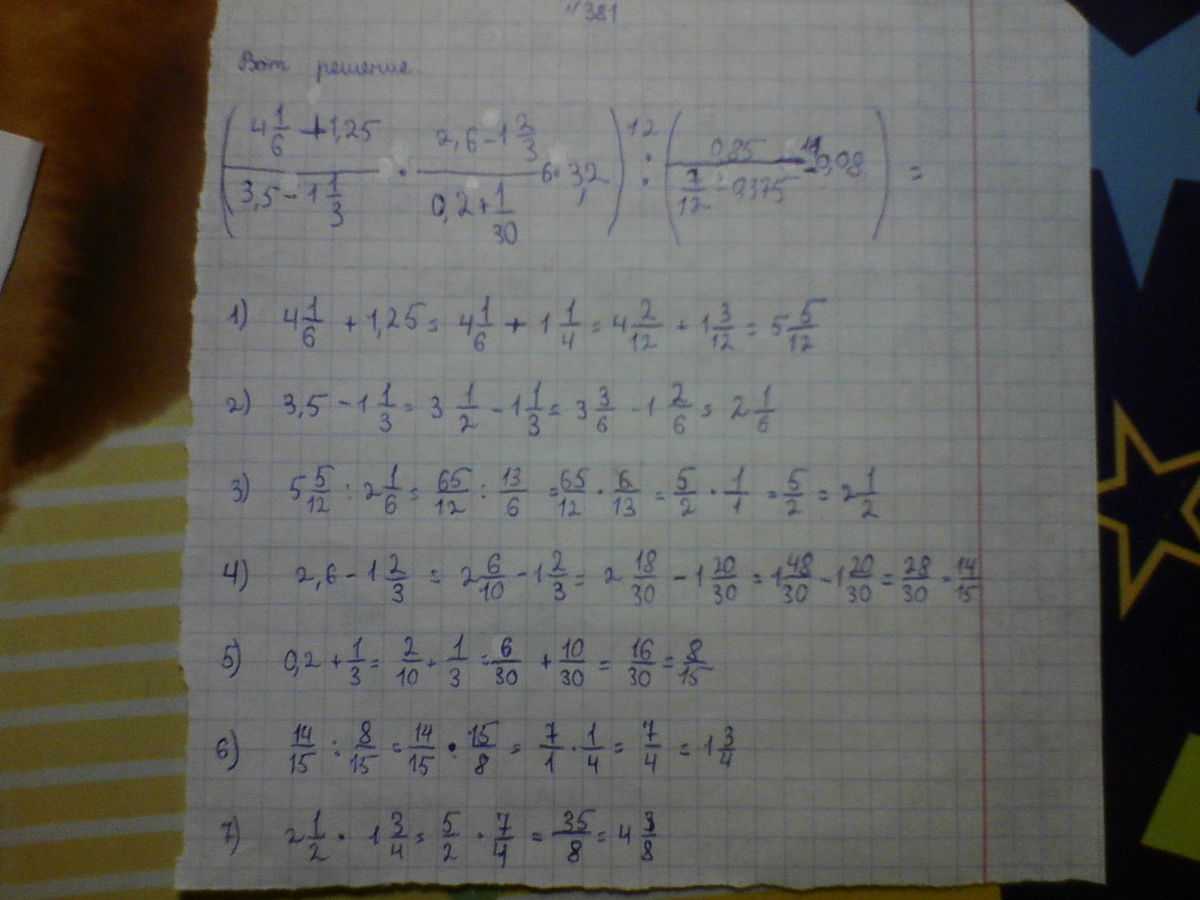 №381
Вот решение.
(4 1/6 + 1,25 / 3,5 - 1 1/3 · 2,6 - 1 2/3 / 0,2 + 1/30 3,2) 12 : (0,85 / 7/12 - 0,375 - 0,08) =
1) 4 1/6 + 1,25 = 4 1/6 + 1 1/4 = 4 2/12 + 1 3/12 = 5 5/12
2) 3,5 - 1 1/3 = 3 1/2 - 1 1/3 = 3 3/6 - 1 2/6 = 2 1/6
3) 5 5/12 : 2 1/6 = 65/12 : 13/6 = 65/12 · 6/13 = 5/2 · 1/1 = 5/2 = 2 1/2
4) 2,6 - 1 2/3 = 2 6/10 - 1 2/3 = 2 18/30 - 1 20/30 = 1 48/30 - 1 20/30 = 28/30 = 14/15
5) 0,2 + 1/3 = 2/10 + 1/3 = 6/30 + 10/30 = 16/30 = 8/15
6) 14/15 : 8/15 = 14/15 · 15/8 = 7/1 · 1/4 = 7/4 = 1 3/4
7) 2 1/2 · 1 3/4 = 5/2 · 7/4 = 35/8 = 4 3/8